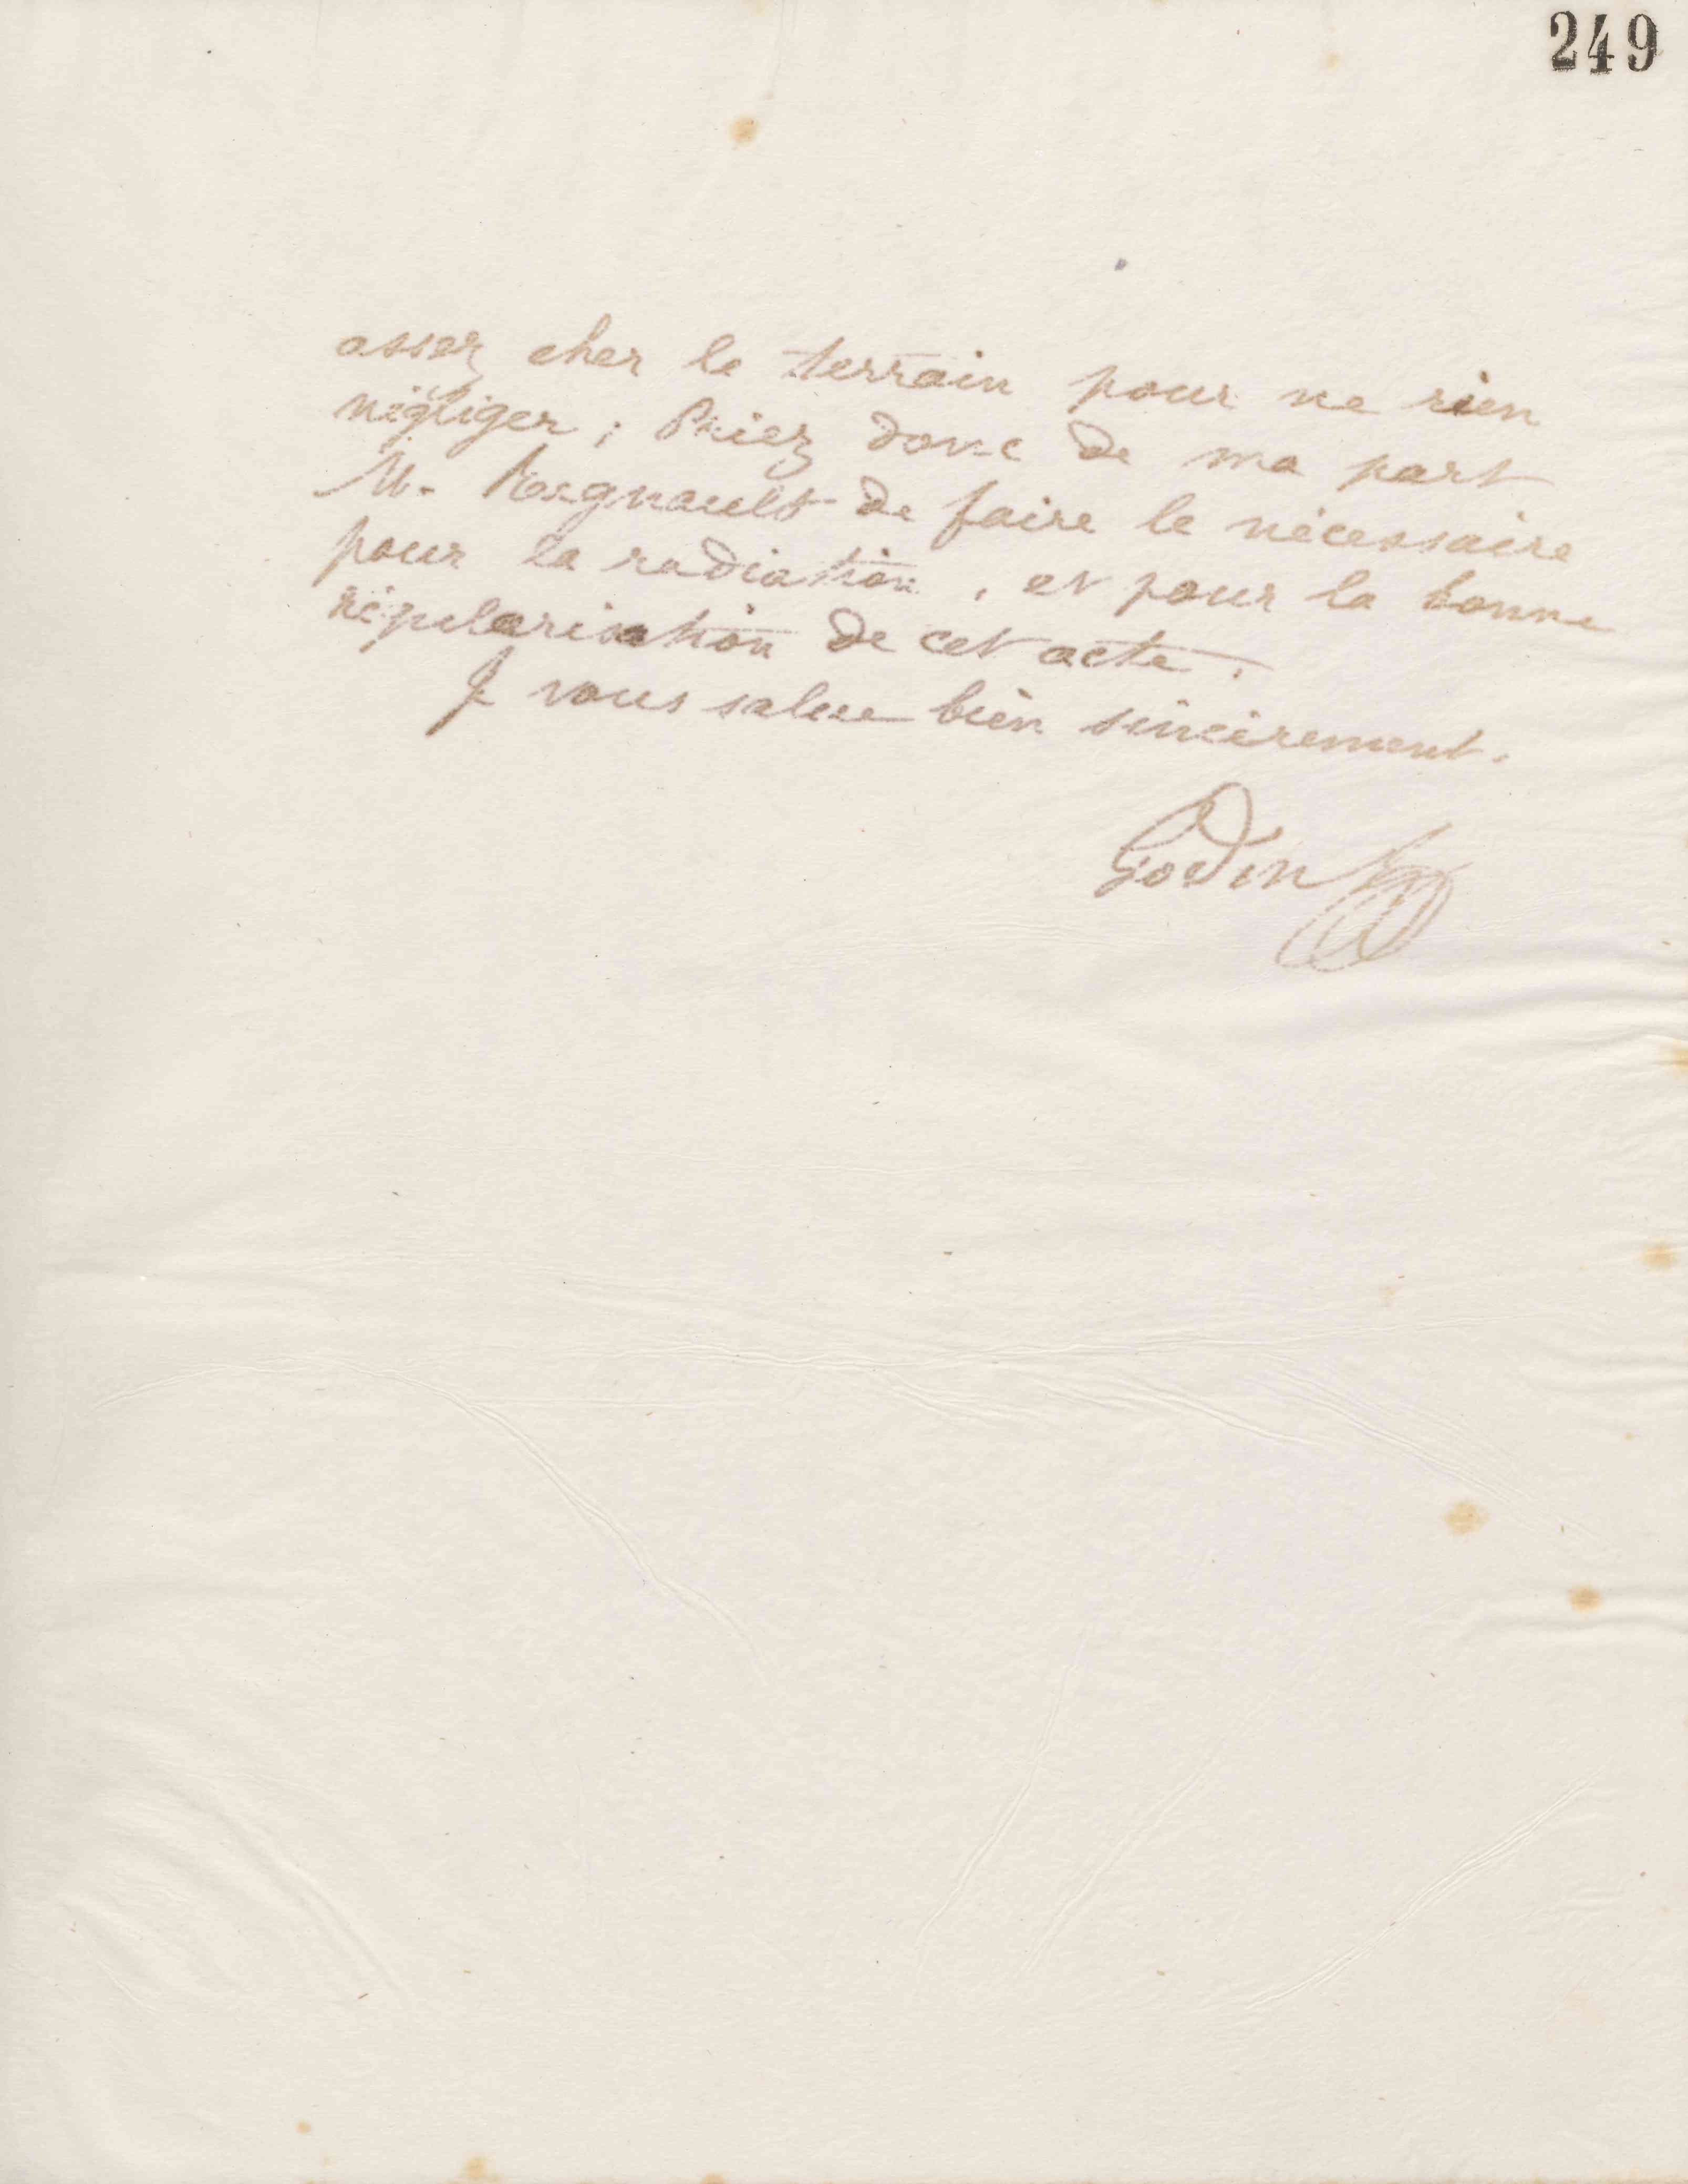 249
assez cher le terrain pour ne rien
négliger ; Priez donc de ma part
M. Regnault de faire le nécessaire
pour la radiation, et pour la bonne
régularisation de cet acte.
Je vous salue bien sincèrement.
Godin